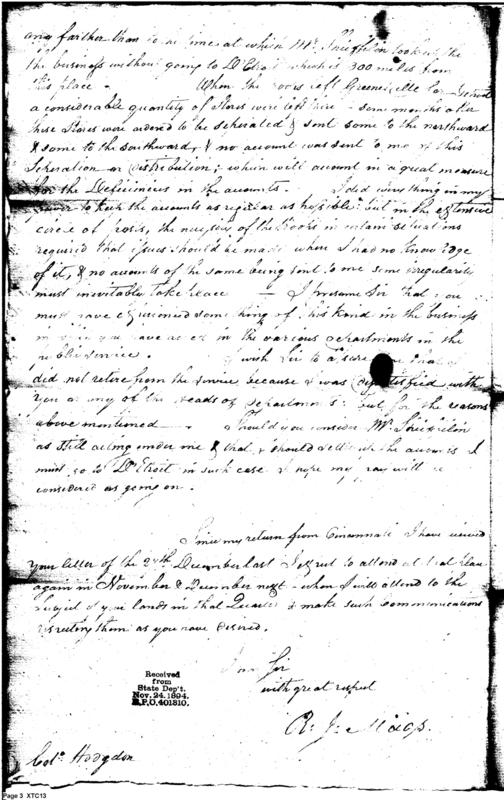 any farther than to a time at which Mr. Shieffelin took up the
the business without going to D'Etroit which is 300 miles from
this place. When the troops left Greeneville for Detroit
a considerable quantity of Stores were left there - some months after
these Stores were ordered to be seperated & sent some to the northward
& some to the Southward, & no account was sent to me of this
Seperation or distribution; which will account in a great measure
for the Deficiences in the accounts. I did every thing in my
power to keep the accounts as regular as possible: but in the extensive
circle of posts, the necessity of the troops in certain situations
required that issues should be made where I had no knowledge
of it, & no accounts of the same being sent to me some irregularities
must inevitably take place - I presume Sir that you
must have experienced something of this kind in the business
in which you have acted in the various departments in the
public service. I wish Sir to assure you that I
did not retire from the service because I was dissatisfied with
you or any of the heads of Departments: but for the reasons
above mentioned. Should you consider Mr. Shieffelin
as still acting under me & that I should settle the accounts I
must go to D'Etroit in such case I hope my pay will be
considered as going on.
Since my return from Cincinnati I have received
your letter of the 27th December last I expect to attend at that place
again in November & December next - when I will attend to the
subject of your lands in that Quarter & make such Communications
respecting them as you have desired.
I am Sir
with great respect
R. J. Meigs.
Received
from
State Dep't.
Nov. 24. 1894.
R.P.O. 401310.
Colo. Hodgdon
Page 3 XTC13